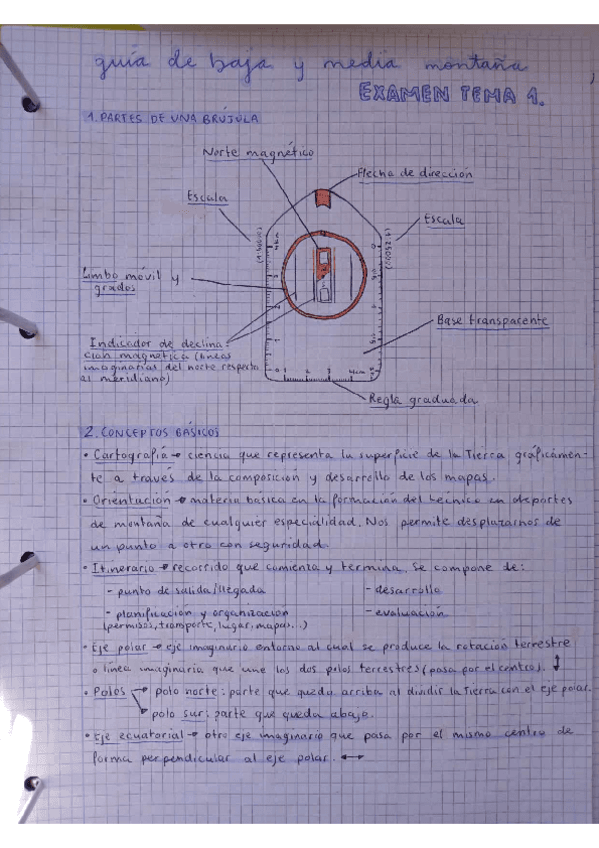 guía de baja y media montaña
EXAMEN TEMA 1.
1. PARTES DE UNA BRÚJULA
Norte magnético
Flecha de dirección
Escala
Escala
(1:50000)
(1:25000)
Limbo móvil y
grados
Indicador de declina-
ción magnética (líneas
imaginarias del norte respecto
al meridiano)
Base transparente
Regla graduada
2. CONCEPTOS BÁSICOS
• Cartografía → ciencia que representa la superficie de la Tierra gráficamen-
te a través de la composición y desarrollo de los mapas.
• Orientación → materia básica en la formación del técnico en deportes
de montaña de cualquier especialidad. Nos permite desplazarnos de
un punto a otro con seguridad.
• Itinerario → recorrido que comienza y termina. Se compone de:
- punto de salida/llegada
- desarrollo
- planificación y organización
(permisos, transporte, lugar, mapas...)
- evaluación
• Eje polar → eje imaginario entorno al cual se produce la rotación terrestre
o línea imaginaria que une los dos polos terrestres (pasa por el centro). ↕
• Polos → polo norte: parte que queda arriba al dividir la tierra con el eje polar.
→ polo sur: parte que queda abajo.
• Eje ecuatorial → otro eje imaginario que pasa por el mismo centro de
forma perpendicular al eje polar. ↔